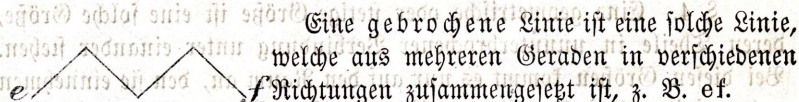 Eine gebrochene Linie ist eine solche Linie,
welche aus mehreren Geraden in verschiedenen
e f Richtungen zusammengesetzt ist, z. B. ef.